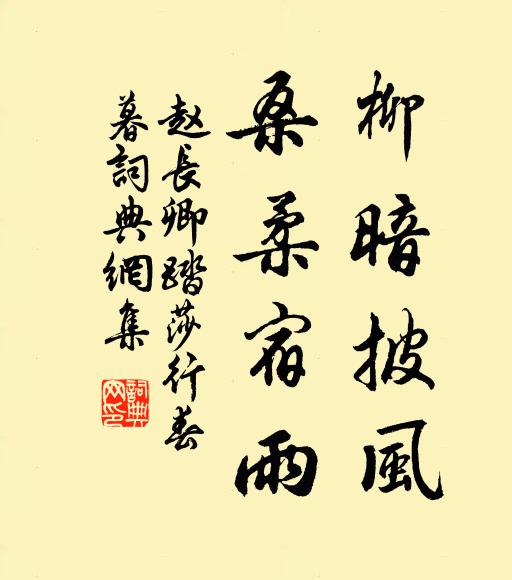 柳暗披風
桑柔宿雨
赵長卿踏莎行春
暮詞典網集
詞典
网印